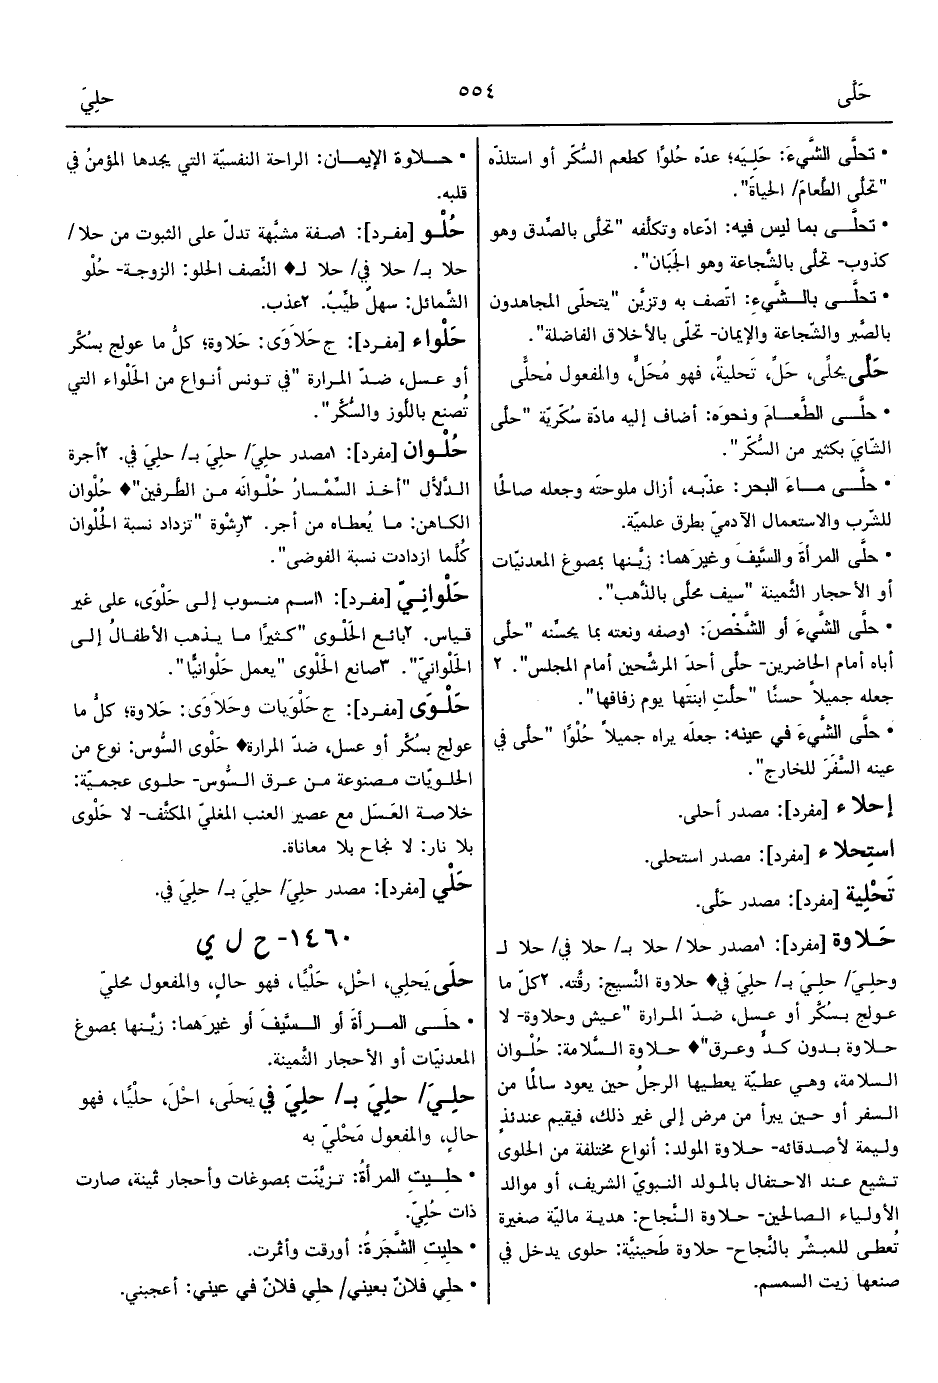 حَلَّى
٥٥٤
حلِيَ
• تحلَّى الشَّيءَ: حَلِيَه؛ عدّه حُلوًا كطعم السُّكّر أو استلذّه
"تحلَّى الطَّعامَ/ الحياةَ".
• تحلَّـى بما ليس فيه: ادّعاه وتكلّفه "تحلّى بالصِّدق وهو
كذوب- تحلّى بالشَّجاعة وهو الجَبَان".
• تحلَّـى بالـشَّيءِ: اتّصف به وتزيَّن "يتحلّى المجاهدون
بالصَّبر والشَّجاعة والإيمان- تحلّى بالأخلاق الفاضلة".
حَلَّى يحلِّي، حَلِّ، تَحليةً، فهو مُحَلٍّ، والمفعول مُحلًّى
• حلَّـى الطَّعـامَ ونحوَه: أضاف إليه مادّة سُكّريّة "حلَّى
الشَّايَ بكثير من السُّكّر".
• حلَّـى مـاءَ البحر: عذّبه، أزال ملوحتَه وجعله صالحًا
للشرب والاستعمال الآدميّ بطرق علميّة.
• حلَّى المرأةَ والسَّيفَ وغيرَهما: زيَّـنها بمصوغ المعدنيّات
أو الأحجار الثَّمينة "سيف محلًّى بالذَّهب".
• حلَّى الشَّيءَ أو الشَّخْصَ: ١وصفه ونعته بما يحسِّنه "حلَّى
أباه أمام الحاضرين- حلَّى أحدَ المرشَّحين أمام المجلس". ٢
جعله جميلاً حسنًا "حلَّتِ ابنتَها يوم زفافها".
• حلَّى الشَّيءَ في عينه: جعله يراه جميلاً حُلْوًا "حلَّى في
عينه السَّفَرَ للخارج".
إحلاء [مفرد]: مصدر أحلى.
استِحلاء [مفرد]: مصدر استحلى.
تَحْلِية [مفرد]: مصدر حَلَّى.
حَـلاوة [مفرد]: ١مصدر حلا/ حلا بـ/ حلا في/ حلا لـ
وحلِـيَ/ حلِـيَ بـ/ حلِيَ في♦ حلاوة النَّسيج: رقَّته. ٢كلّ ما
عـولج بسُكَّر أو عسل، ضدّ المرارة "عـيش وحلاوة- لا
حـلاوة بـدون كـدٍّ وعـرق"♦ حـلاوة السَّلامة: حُلْوان
السلامة، وهي عطيّة يعطيها الرجلُ حين يعود سالمًا من
السفر أو حـين يبرأ من مرض إلى غير ذلك، فيقيم عندئذٍ
ولـيمة لأصدقائه- حـلاوة المولد: أنواع مختلفة من الحلوى
تـشيع عـند الاحتفال بالمـولد النبويّ الشريف، أو موالد
الأولـياء الصالحين- حلاوة النَّجاح: هديـة ماليّة صغيرة
تُعطى للمبشِّر بالنَّجاح- حلاوة طَحينيَّة: حلوى يدخل في
صنعها زيت السمسم.
• حـلاوة الإيمـان: الراحة النفسيّة التي يجدها المؤمنُ في
قلبه.
حُلْـو [مفرد]: ١صفة مشبَّهة تدلّ على الثبوت من حلا/
حلا بـ/ حلا في/ حلا لـ♦ النِّصف الحلو: الزوجـة- حُلْو
الشَّمائل: سهلٌ طيِّبٌ. ٢عذب.
حَلْواء [مفـرد]: ج حَلاوَى: حَلاوة؛ كلُّ ما عولج بسُكَّر
أو عـسل، ضـدّ المـرارة "في تـونس أنـواع من الحَلْواء التي
تُصنع باللَّوز والسُّكّر".
حُلْـوان [مفرد]: ١مصدر حلِيَ/ حلِيَ بـ/ حلِيَ في. ٢أجرة
الـدَّلاّل "أخـذ السِّمْسارُ حُلْوانَه مـن الطَّرفين"♦ حُلْوان
الكـاهن: مـا يُعطاه من أجر. ٣رِشْوة "تزداد نسبة الحُلْوان
كُلَّما ازدادت نسبة الفوضى".
حَلْوانِـيّ [مفرد]: ١اسـم منسوب إلـى حَلْوَى، على غير
قـياس. ٢بائع الحَلْـوى "كثيرًا ما يـذهب الأطفـالُ إلـى
الحَلْوانيّ". ٣صانع الحَلْوى "يعمل حَلوانيًّا".
حَلْـوَى [مفرد]: ج حَلْوَيات وحَلاَوَى: حَلاوة؛ كلُّ ما
عولج بسُكَّر أو عسل، ضدّ المرارة♦ حَلْوى السُّوس: نوع من
الحلويّات مـصنوعة مـن عـرق السُّوس- حلـوى عجميّة:
خلاصـة العَسَل مع عصير العنب المغليّ المكثَّف- لا حَلْوى
بلا نار: لا نجاح بلا معاناة.
حَلْي [مفرد]: مصدر حلِيَ/ حلِيَ بـ/ حلِيَ في.
١٤٦٠- ح ل ي
حلَى يَحلِي، احْلِ، حَلْيًا، فهو حالٍ، والمفعول محليّ
• حلَـى المـرأةَ أو الـسَّيفَ أو غيرَهما: زيَّـنها بمصوغ
المعدنيّات أو الأحجار الثَّمينة.
حلِـيَ/ حلِيَ بـ/ حلِيَ في يَحلَى، احْلَ، حلْيًا، فهو
حالٍ، والمفعول مَحْليّ به
• حلِـيتِ المرأةُ: تـزيَّنَت بمصوغات وأحجار ثمينة، صارت
ذات حُلِيّ.
• حليتِ الشَّجَرةُ: أورقت وأثمرت.
• حلِي فلانٌ بعيني/ حلِي فلانٌ في عيني: أعجبني.